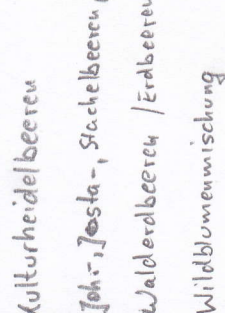 Kulturheidelbeeren
Joh.-, Josta-, Stachelbeeren,
Walderdbeeren / Erdbeeren
Wildblumenmischung